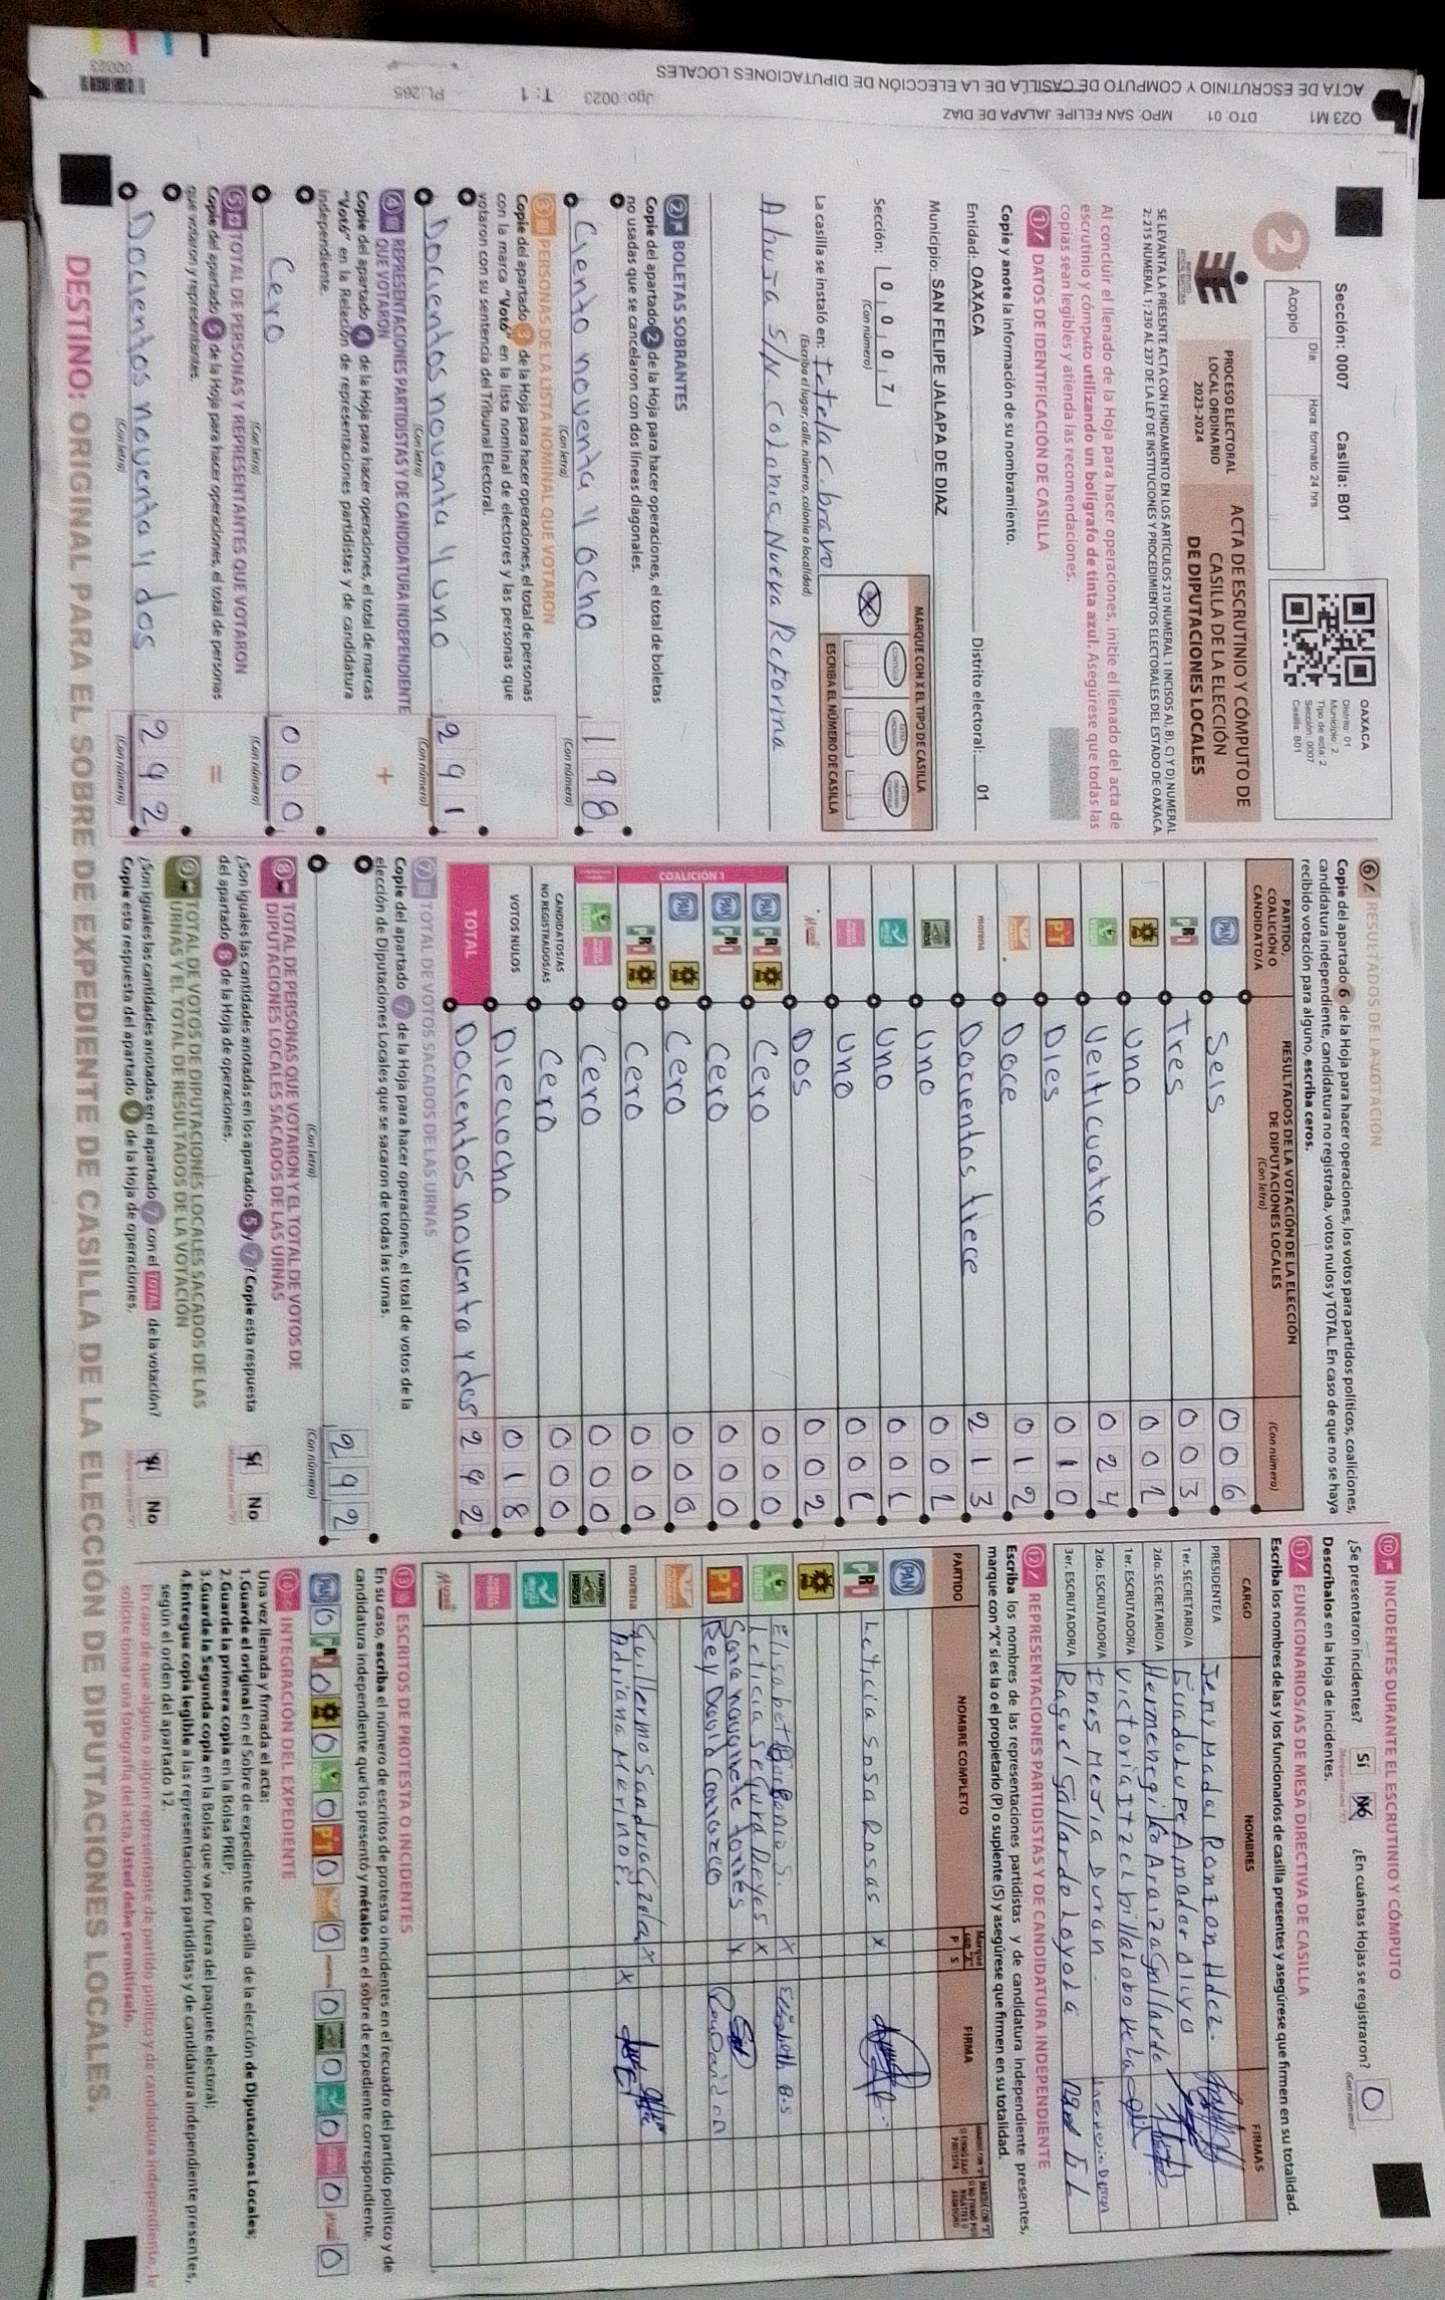 023 M1 DTO: 01 MPO: SAN FELIPE JALAPA DE DIAZ
ACTA DE ESCRUTINIO Y COMPUTO DE CASILLA DE LA ELECCIÓN DE DIPUTACIONES LOCALES
Jgo: 0023 T: 1 PL:265
00023
Sección: 0007 Casilla: B01
Día: Hora: formato 24 hrs
Acopio
OAXACA
Distrito: 01
Municipio: 2
Tipo de acta: 2
Sección: 0007
Casilla: B01
2
PROCESO ELECTORAL
LOCAL ORDINARIO
2023-2024
ACTA DE ESCRUTINIO Y CÓMPUTO DE
CASILLA DE LA ELECCIÓN
DE DIPUTACIONES LOCALES
SE LEVANTA LA PRESENTE ACTA CON FUNDAMENTO EN LOS ARTÍCULOS 210 NUMERAL 1 INCISOS A), B), C) Y D) NUMERAL
2; 215 NUMERAL 1; 230 AL 237 DE LA LEY DE INSTITUCIONES Y PROCEDIMIENTOS ELECTORALES DEL ESTADO DE OAXACA.
Al concluir el llenado de la Hoja para hacer operaciones, inicie el llenado del acta de
escrutinio y cómputo utilizando un bolígrafo de tinta azul. Asegúrese que todas las
copias sean legibles y atienda las recomendaciones.
1 DATOS DE IDENTIFICACIÓN DE CASILLA
Copie y anote la información de su nombramiento.
Entidad: OAXACA Distrito electoral: 01
Municipio: SAN FELIPE JALAPA DE DIAZ
Sección: 0 0 0 7
(Con número)
MARQUE CON X EL TIPO DE CASILLA
X
ESCRIBA EL NÚMERO DE CASILLA
La casilla se instaló en: tetela c. bravo
(Escriba el lugar, calle, número, colonia o localidad)
Ahuja S/N Colonia Nueva Reforma
2 BOLETAS SOBRANTES
Copie del apartado 2 de la Hoja para hacer operaciones, el total de boletas
no usadas que se cancelaron con dos líneas diagonales.
Ciento noventa y ocho 198
(Con letra) (Con número)
3 PERSONAS DE LA LISTA NOMINAL QUE VOTARON
Copie del apartado 3 de la Hoja para hacer operaciones, el total de personas
con la marca "Votó" en la lista nominal de electores y las personas que
votaron con su sentencia del Tribunal Electoral.
Docientos noventa y uno 291
(Con letra) (Con número)
4 REPRESENTACIONES PARTIDISTAS Y DE CANDIDATURA INDEPENDIENTE
QUE VOTARON +
Copie del apartado 4 de la Hoja para hacer operaciones, el total de marcas
"Votó" en la Relación de representaciones partidistas y de candidatura
independiente.
Cero 000
(Con letra) (Con número)
5 TOTAL DE PERSONAS Y REPRESENTANTES QUE VOTARON
Copie del apartado 5 de la Hoja para hacer operaciones, el total de personas
que votaron y representantes. =
Docientos noventa y dos 292
(Con letra) (Con número)
6 RESULTADOS DE LA VOTACIÓN
Copie del apartado 6 de la Hoja para hacer operaciones, los votos para partidos políticos, coaliciones,
candidatura independiente, candidatura no registrada, votos nulos y TOTAL. En caso de que no se haya
recibido votación para alguno, escriba ceros.
PARTIDO, COALICIÓN O CANDIDATO/A
RESULTADOS DE LA VOTACIÓN DE LA ELECCIÓN
DE DIPUTACIONES LOCALES
(Con letra) (Con número)
PAN Seis 006
PRI Tres 003
Uno 001
Veiticuatro 024
PT Dies 010
Doce 012
morena Docientos trece 213
Uno 001
Uno 001
Uno 001
Dos 002
COALICIÓN 1
PAN PRI Cero 000
PAN PRI Cero 000
PAN Cero 000
PRI Cero 000
Cero 000
CANDIDATOS/AS
NO REGISTRADOS/AS Cero 000
VOTOS NULOS Dieciocho 018
TOTAL Docientos noventa y dos 292
7 TOTAL DE VOTOS SACADOS DE LAS URNAS
Copie del apartado 7 de la Hoja para hacer operaciones, el total de votos de la
elección de Diputaciones Locales que se sacaron de todas las urnas.
292
(Con letra) (Con número)
8 TOTAL DE PERSONAS QUE VOTARON Y EL TOTAL DE VOTOS DE
DIPUTACIONES LOCALES SACADOS DE LAS URNAS
¿Son iguales las cantidades anotadas en los apartados 5 y 7? Copie esta respuesta
del apartado 8 de la Hoja de operaciones. Sí No
9 TOTAL DE VOTOS DE DIPUTACIONES LOCALES SACADOS DE LAS
URNAS Y EL TOTAL DE RESULTADOS DE LA VOTACIÓN
¿Son iguales las cantidades anotadas en el apartado 7 con el TOTAL de la votación?
Copie esta respuesta del apartado 9 de la Hoja de operaciones. Sí No
10 INCIDENTES DURANTE EL ESCRUTINIO Y CÓMPUTO
¿Se presentaron incidentes? Sí No ¿En cuántas Hojas se registraron? 0
Descríbalos en la Hoja de incidentes.
11 FUNCIONARIOS/AS DE MESA DIRECTIVA DE CASILLA
Escriba los nombres de las y los funcionarios de casilla presentes y asegúrese que firmen en su totalidad.
CARGO NOMBRES FIRMAS
PRESIDENTE/A Jeny Madai Ronzon Hdez.
1er. SECRETARIO/A Guadalupe Amador Olivo
2do. SECRETARIO/A Hermenegilko Araiza Gallardo
1er. ESCRUTADOR/A Victoria Itzel billalobo Vela
2do. ESCRUTADOR/A Enes Mesria Duran
3er. ESCRUTADOR/A Raquel Gallardo Loyola
12 REPRESENTACIONES PARTIDISTAS Y DE CANDIDATURA INDEPENDIENTE
Escriba los nombres de las representaciones partidistas y de candidatura independiente presentes,
marque con "X" si es la o el propietario (P) o suplente (S) y asegúrese que firmen en su totalidad.
PARTIDO NOMBRE COMPLETO P S FIRMA
PAN
PRI Leticia Sosa Rosas X
Elisabet S. X
Leticia Segura Reyes X
PT Sara navarrete torres X
Rey David Carrasco
morena Guillermo X
Adriana Merino E. X
13 ESCRITOS DE PROTESTA O INCIDENTES
En su caso, escriba el número de escritos de protesta o incidentes en el recuadro del partido político y de
candidatura independiente que los presentó y métalos en el sobre de expediente correspondiente.
PAN 0 PRI 0 0 0 PT 0 0 morena 0 0 0 0 0
INTEGRACIÓN DEL EXPEDIENTE
Una vez llenada y firmada el acta:
1. Guarde el original en el Sobre de expediente de casilla de la elección de Diputaciones Locales;
2. Guarde la primera copia en la Bolsa PREP;
3. Guarde la Segunda copia en la Bolsa que va por fuera del paquete electoral;
4. Entregue copia legible a las representaciones partidistas y de candidatura independiente presentes,
según el orden del apartado 12.
En caso de que alguna o algún representante de partido político y de candidatura independiente, le
solicite tomar una fotografía del acta, Usted debe permitírselo.
DESTINO: ORIGINAL PARA EL SOBRE DE EXPEDIENTE DE CASILLA DE LA ELECCIÓN DE DIPUTACIONES LOCALES.